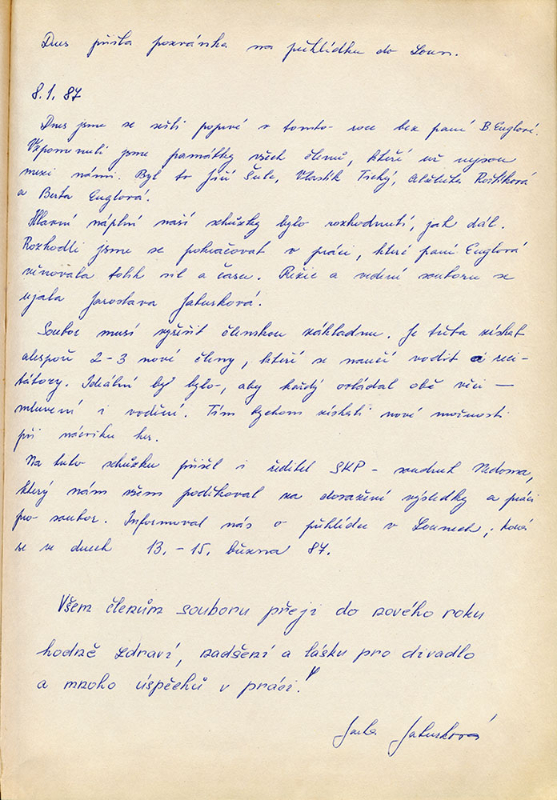 Dnes přišla pozvánka na přehlídku do Loun.
8.1.87
Dnes jsme se sešli poprvé v tomto roce bez paní B. Englové.
Vzpomnuli jsme památky všech členů, kteří už nejsou
mezi námi. Byl to Jiří Šulc, Vlastík Tichý,
a Berta Englová.
Hlavní náplní naší schůzky bylo rozhodnutí, jak dál.
Rozhodli jsme se pokračovat v práci, které paní Englová
věnovala tolik sil a času. Režie a vedení souboru se
ujala Jaroslava Jaturková.
Soubor musí vyřešit členskou základnu. Je třeba získat
alespoň 2-3 nové členy, kteří se naučí vodit a reci-
tátory. Ideální by bylo, aby každý ovládal obě věci –
mluvení i vodění. Tím bychom získali nové možnosti
při nácviku her.
Na tuto schůzku přišel i ředitel SKP - soudruh Nedoma,
který nám všem poděkoval za dosažené výsledky a práci
pro soubor. Informoval nás o přehlídce v Lounech, která
je ve dnech 13. - 15. března 87.
Všem členům souboru přeji do nového roku
hodně zdraví, nadšení a lásku pro divadlo
a mnoho úspěchů v práci!
Jarka Jaturková